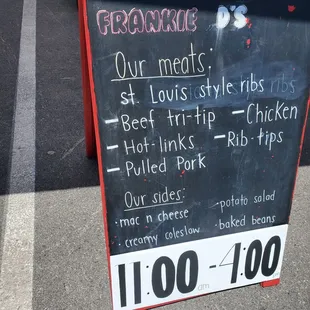 FRANKIE D'S
Our meats:
St. Louis style ribs
- Beef tri-tip - Chicken
- Hot-links - Rib-tips
- Pulled Pork
Our sides:
· mac n cheese · potato salad
· creamy coleslaw · baked beans
11:00 am - 4:00 pm